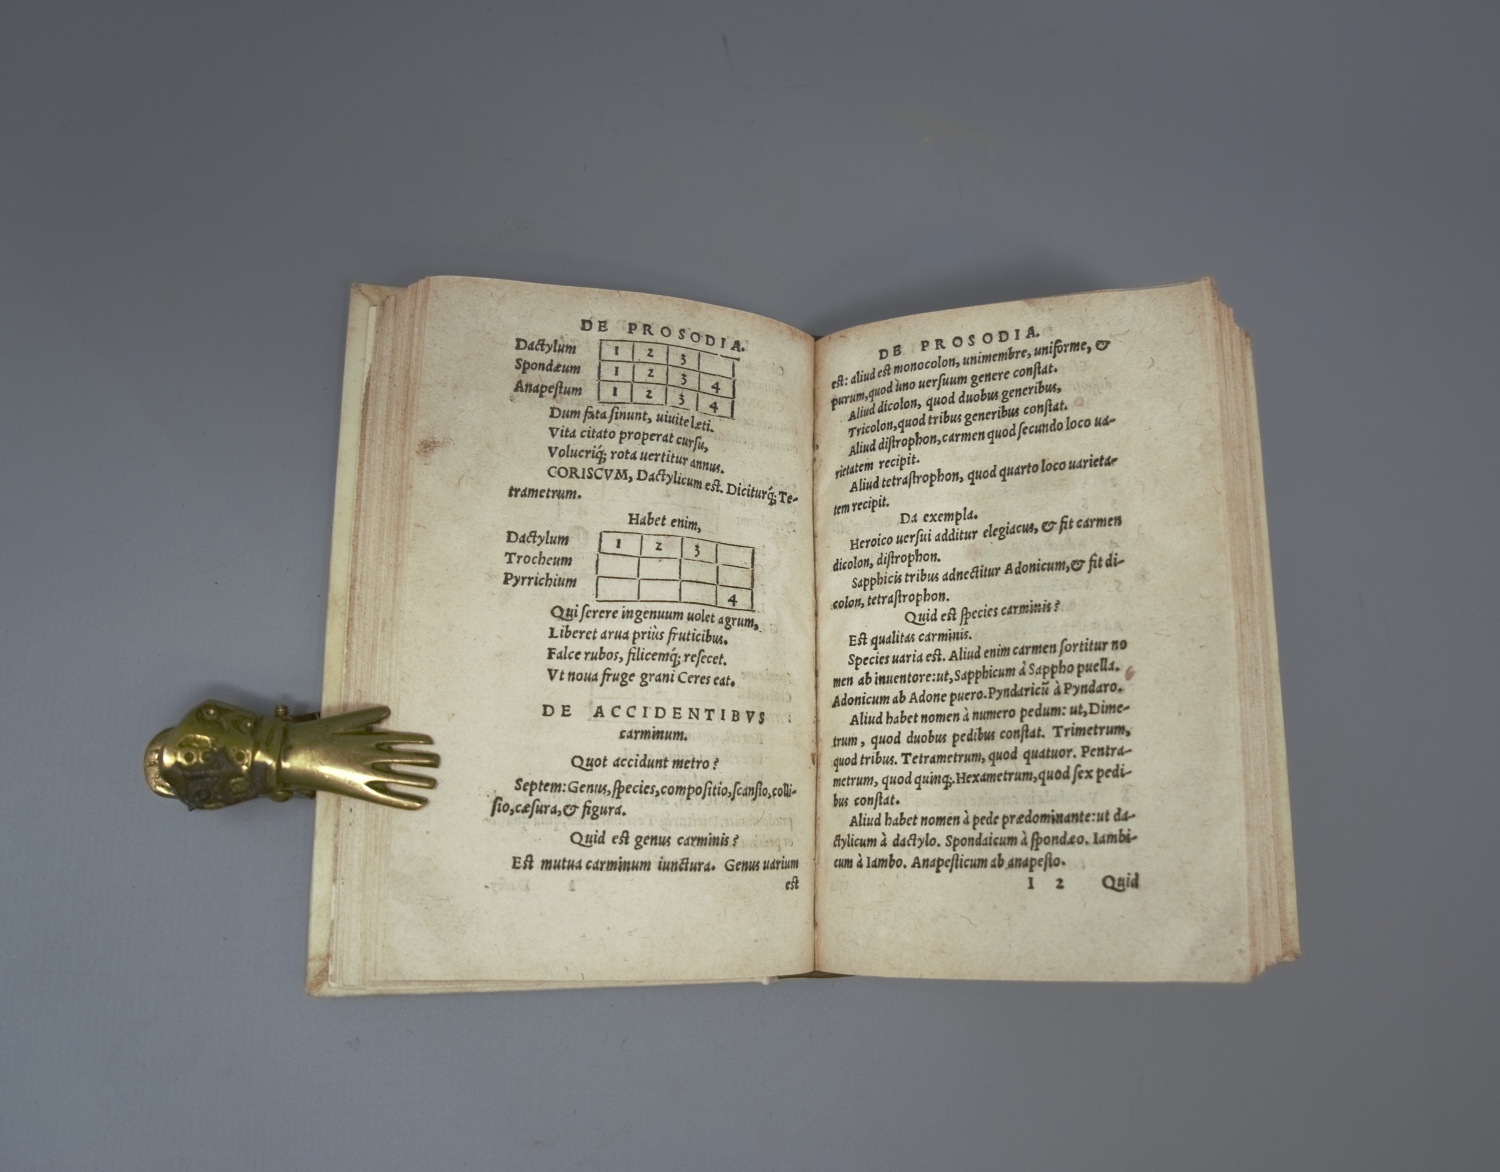 DE PROSODIA.
Dactylum 1 2 3
Spondæum 1 2 3 4
Anapeſtum 1 2 3 4
Dum fata ſinunt, uiuite læti.
Vita citato properat curſu,
Volucriq́; rota uertitur annus.
CORISCVM, Dactylicum est. Diciturq́; Te-
trametrum.
Habet enim,
Dactylum 1 2 3
Trocheum
Pyrrichium 4
Qui ſerere ingenuum uolet agrum,
Liberet arua priùs fruticibus.
Falce rubos, filicemq́; reſecet.
Vt noua fruge grani Ceres eat.
DE ACCIDENTIBVS
carminum.
Quot accidunt metro?
Septem: Genus, ſpecies, compoſitio, ſcanſio, colli-
ſio, cæſura, & figura.
Quid est genus carminis?
Est mutua carminum iunctura. Genus uarium
est
DE PROSODIA.
est: aliud est monocolon, unimembre, uniforme, &
purum, quod uno uerſuum genere conſtat.
Aliud dicolon, quod duobus generibus,
Tricolon, quod tribus generibus conſtat.
Aliud diſtrophon, carmen quod ſecundo loco ua-
rietatem recipit.
Aliud tetraſtrophon, quod quarto loco uarieta-
tem recipit.
Da exempla.
Heroico uerſui additur elegiacus, & fit carmen
dicolon, diſtrophon.
Sapphicis tribus adnectitur Adonicum, & fit di-
colon, tetraſtrophon.
Quid est ſpecies carminis?
Est qualitas carminis.
Species uaria est. Aliud enim carmen ſortitur no
men ab inuentore: ut, Sapphicum à Sappho puella.
Adonicum ab Adone puero. Pyndaricū à Pyndaro.
Aliud habet nomen à numero pedum: ut, Dime-
trum, quod duobus pedibus conſtat. Trimetrum,
quod tribus. Tetrametrum, quod quatuor. Pentra-
metrum, quod quinq;. Hexametrum, quod ſex pedi-
bus conſtat.
Aliud habet nomen à pede prædominante: ut da-
ctylicum à dactylo. Spondaicum à ſpondæo. Iambi-
cum à Iambo. Anapeſticum ab anapeſto.
I 2 Quid